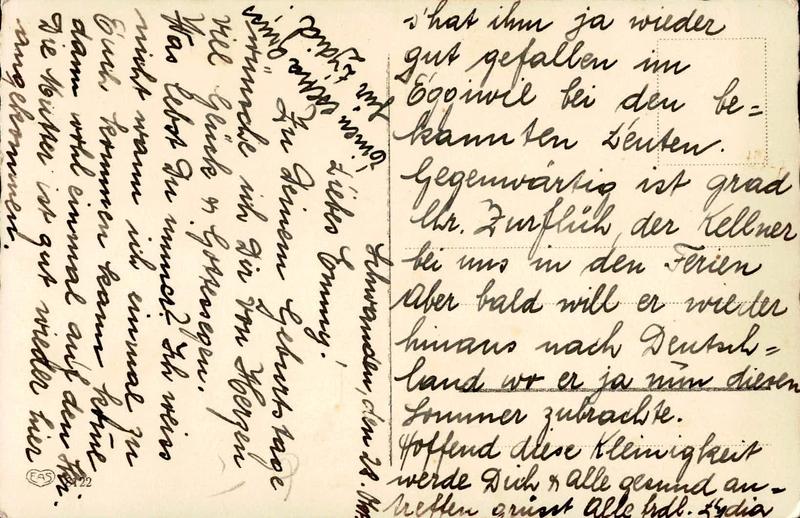 Schwanden, den 28. Okt.
Liebes Emmy!
Zu Deinem Geburtstage
wünsche ich Dir von Herzen
viel Glück & Gottessegen.
Was lebst Du immer? Ich weiss
nicht wann ich einmal zu
Euch kommen kann käme
dann wohl einmal auf den
Die Mutter ist gut wieder hier
angekommen.
s'hat ihm ja wieder
gut gefallen im
Eggiwil bei den be=
kannten Leuten.
Gegenwärtig ist grad
Hr. Zurflüh, der Kellner
bei uns in den Ferien
Aber bald will er wieder
hinaus nach Deutsch=
land wo er ja nun diesen
Sommer zubrachte.
Hoffend diese Kleinigkeit
werde Dich & Alle gesund an=
treffen grüsst Alle frdl. Lydia
Einen
EAS
22